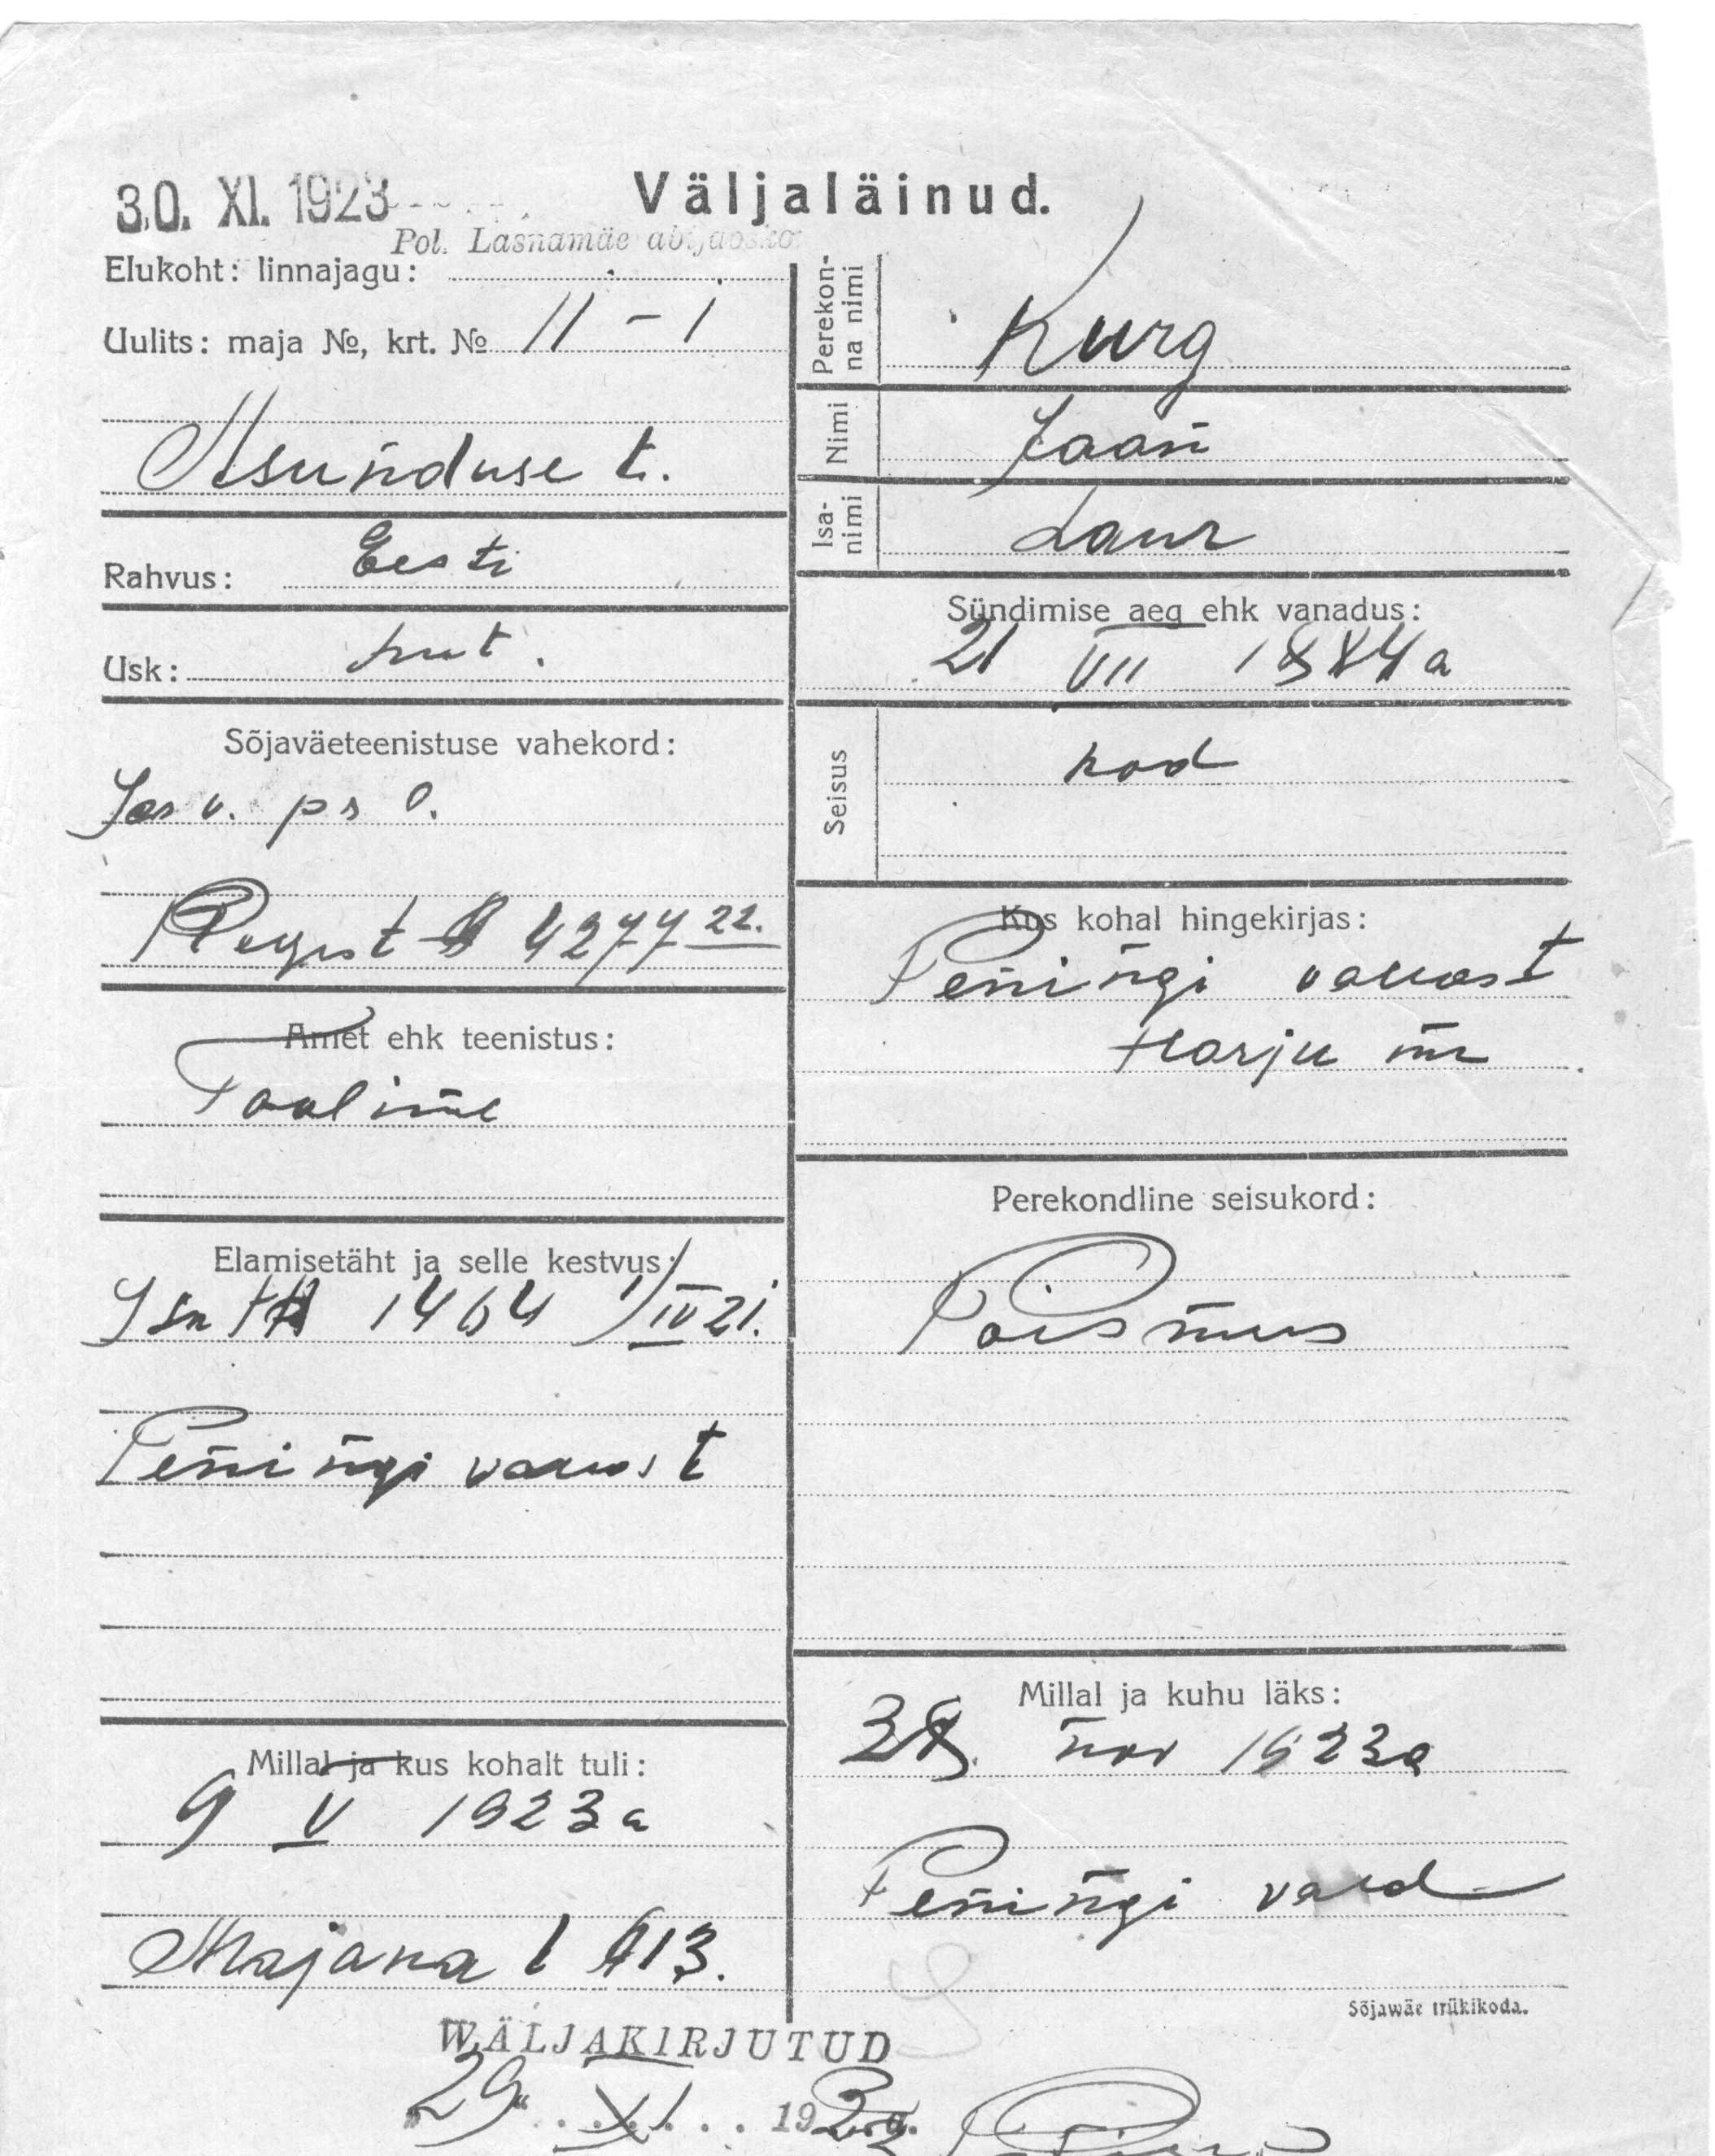 30. XI. 1923
Väljaläinud.
Pol. Lasnamäe abijaosko
Elukoht: linnajagu:
Uulits: maja №, krt. № 11 – 1
Asunduse t.
Rahvus: Eesti
Usk: lut.
Sõjaväeteenistuse vahekord:
Regist № 4277 22.
Amet ehk teenistus:
Tööline
Elamisetäht ja selle kestvus:
1464 1/IV 21.
Peningi vallast
Millal ja kus kohalt tuli:
9 V 1923 a
Majaka t № 13.
Perekonna nimi Kurg
Nimi Jaan
Isanimi Laur
Sündimise aeg ehk vanadus:
21 VII 1884 a
Seisus kod
Kus kohal hingekirjas:
Peningi vallast
Harju m
Perekondline seisukord:
Poismees
Millal ja kuhu läks:
nov 1923 a
Peningi vald
Sõjawäe trükikoda.
WÄLJAKIRJUTUD
"29" XI 192